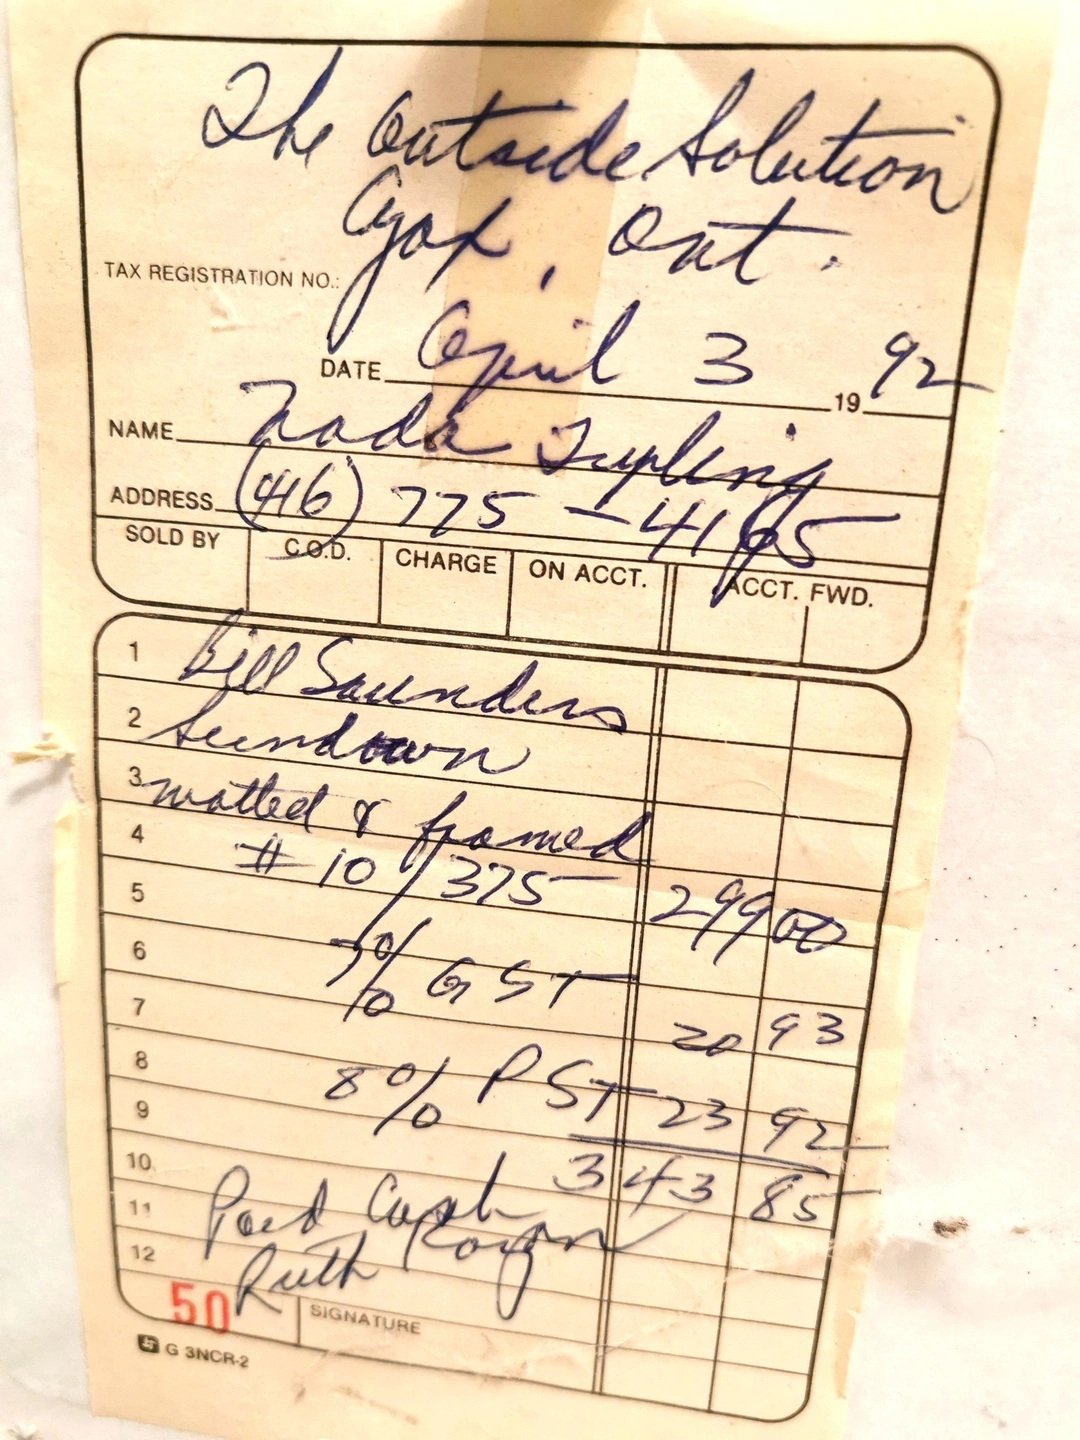 The Outside Solution
Ajax, Ont.
TAX REGISTRATION NO.:
DATE April 3 1992
NAME Nada Tupling
ADDRESS (416) 775-4195
SOLD BY C.O.D. CHARGE ON ACCT. ACCT. FWD.
1 Bill Saunders
2 Sundown
3 matted & framed
4 # 10/375 299 00
5
6 7% GST
7 20 93
8 8% PST 23 92
9 343 85
10 Paid Cash
11 Ruth
12
50 SIGNATURE
G 3NCR-2